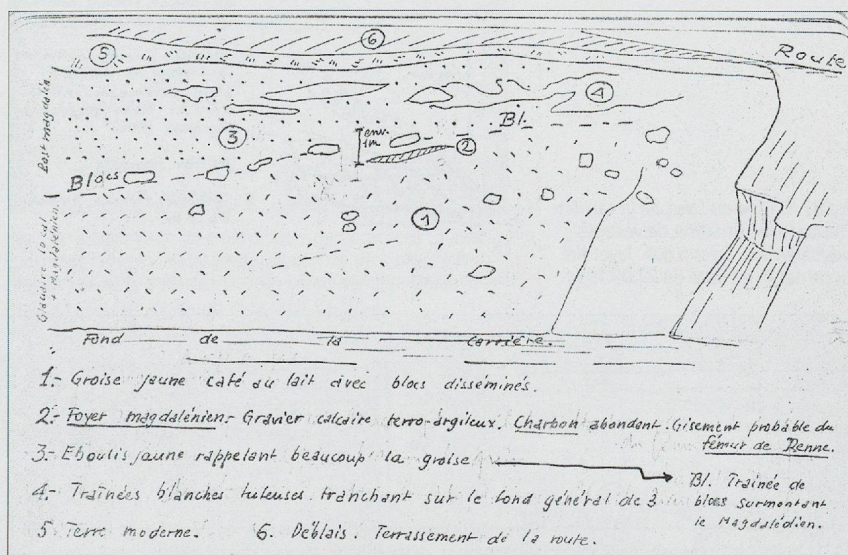 6
5
Route
4
Bl.
3
env.
1m
2
Blocs
1
Post magdalén.
Glaciaire local
+ Magdalénien.
Fond de la Carrière.
1.- Groise jaune café au lait avec blocs disséminés.
2.- Foyer magdalénien.- Gravier calcaire terro-argileux. Charbon abondant. Gisement probable du
fémur de Renne.
3.- Eboulis jaune rappelant beaucoup la groise
Bl. Trainée de
blocs surmontant
le Magdalédien.
4.- Traînées blanches tufeuses tranchant sur le fond général de 3
5 Terre moderne. 6. Déblais. Terrassement de la route.